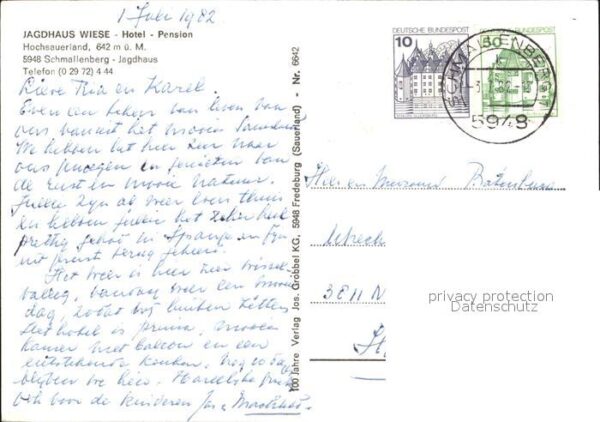 1 Juli 1982
JAGDHAUS WIESE - Hotel - Pension
Hochsauerland, 642 m ü. M.
5948 Schmallenberg - Jagdhaus
Telefon (0 29 72) 4 44
Lieve Ria en Karel.
Even een teken van leven van
ons vanuit het mooie Sauerland
We hebben het hier zeer naar
ons en genieten van
de rust en mooie natuur.
Jullie zijn al weer thuis
en hebben jullie het zeker heel
prettig gehad in Spanje en
terug
Het weer is hier zeer wissel
vallig, vandaag weer een mooie
dag, zodat wij buiten zitten
Het hotel is prima, mooie
kamer met balcon en een
uitstekende keuken. Nog 10 dagen
blijven we hier. Hartelijke
ook voor de kinderen Jos
100 Jahre Verlag Jos. Grobbel KG, 5948 Fredeburg (Sauerland) - Nr. 6642
10
DEUTSCHE BUNDESPOST
50
DEUTSCHE BUNDESPOST
SCHMALLENBERG 1
5948
Batenburg
Utrech
3811 N
privacy protection
Datenschutz